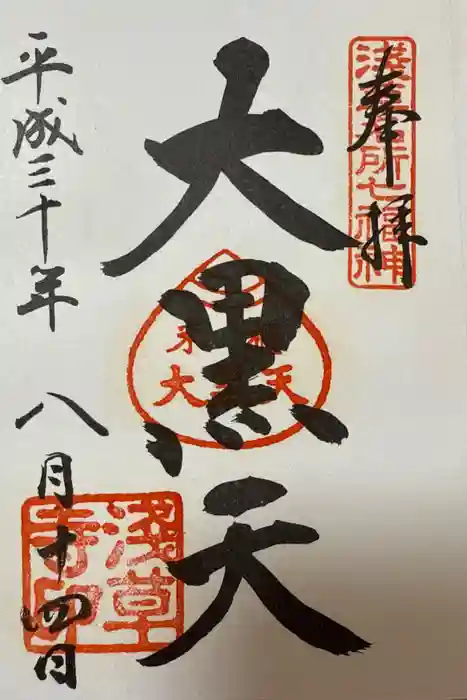 奉拝
淺草名所七福神
大黒天
平成三十年
八月十四日
淺草寺印